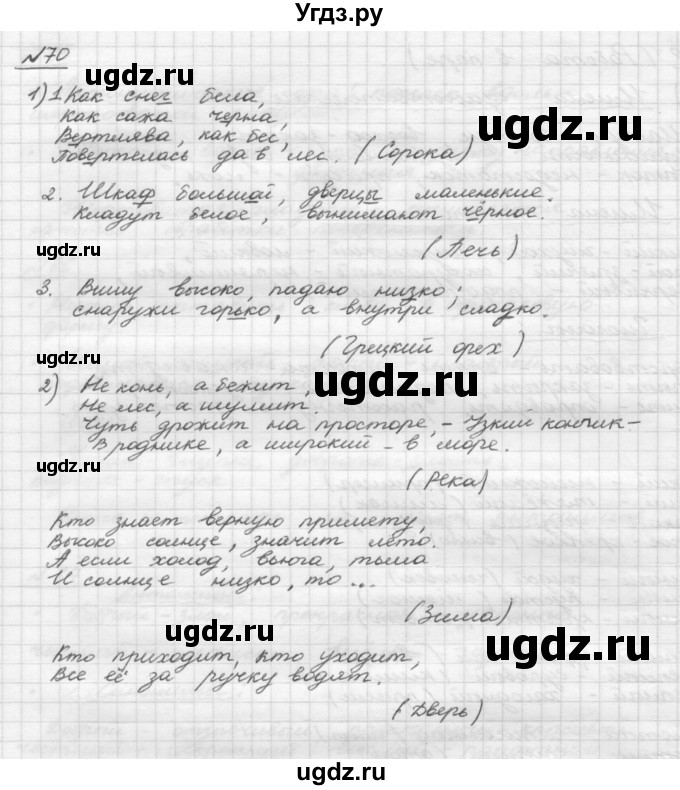 Угдз.ру
№70
ugdz.ru
1) 1. Как снег бела,
Как сажа черна,
Вертлява, как бес,
Повертелась да в лес. (Сорока)
ugdz.ru
2. Шкаф большой, дверцы маленькие.
Кладут белое, вынимают чёрное.
ugdz.ru
(Печь)
3. Вишу высоко, падаю низко;
снаружи горько, а внутри сладко.
ugdz.ru
(Грецкий орех)
ugdz.ru
2) Не конь, а бежит,
Не лес, а шумит.
Чуть дрожит на просторе, - Узкий кончик -
В роднике, а широкий - в море.
(Река)
Кто знает верную примету,
Высоко солнце, значит лето.
А если холод, вьюга, тьма
И солнце низко, то ...
(Зима)
ugdz.ru
ugdz.ru
Кто приходит, кто уходит,
Все её за ручку водят.
(Дверь)
ugdz.ru
ugdz.ru